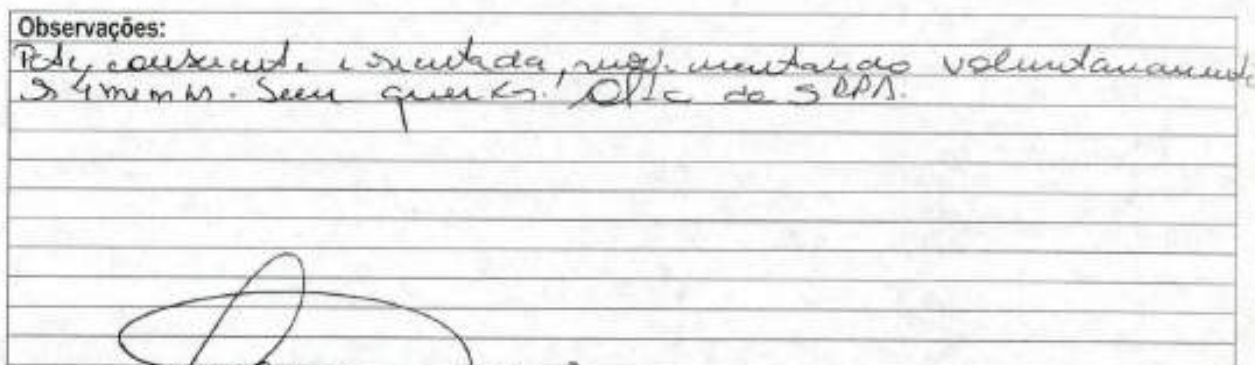 Observações:
Pcte consciente, orientada, movimentando voluntariamente
os 4 membros. Sem queixas. Alta da SRPA.